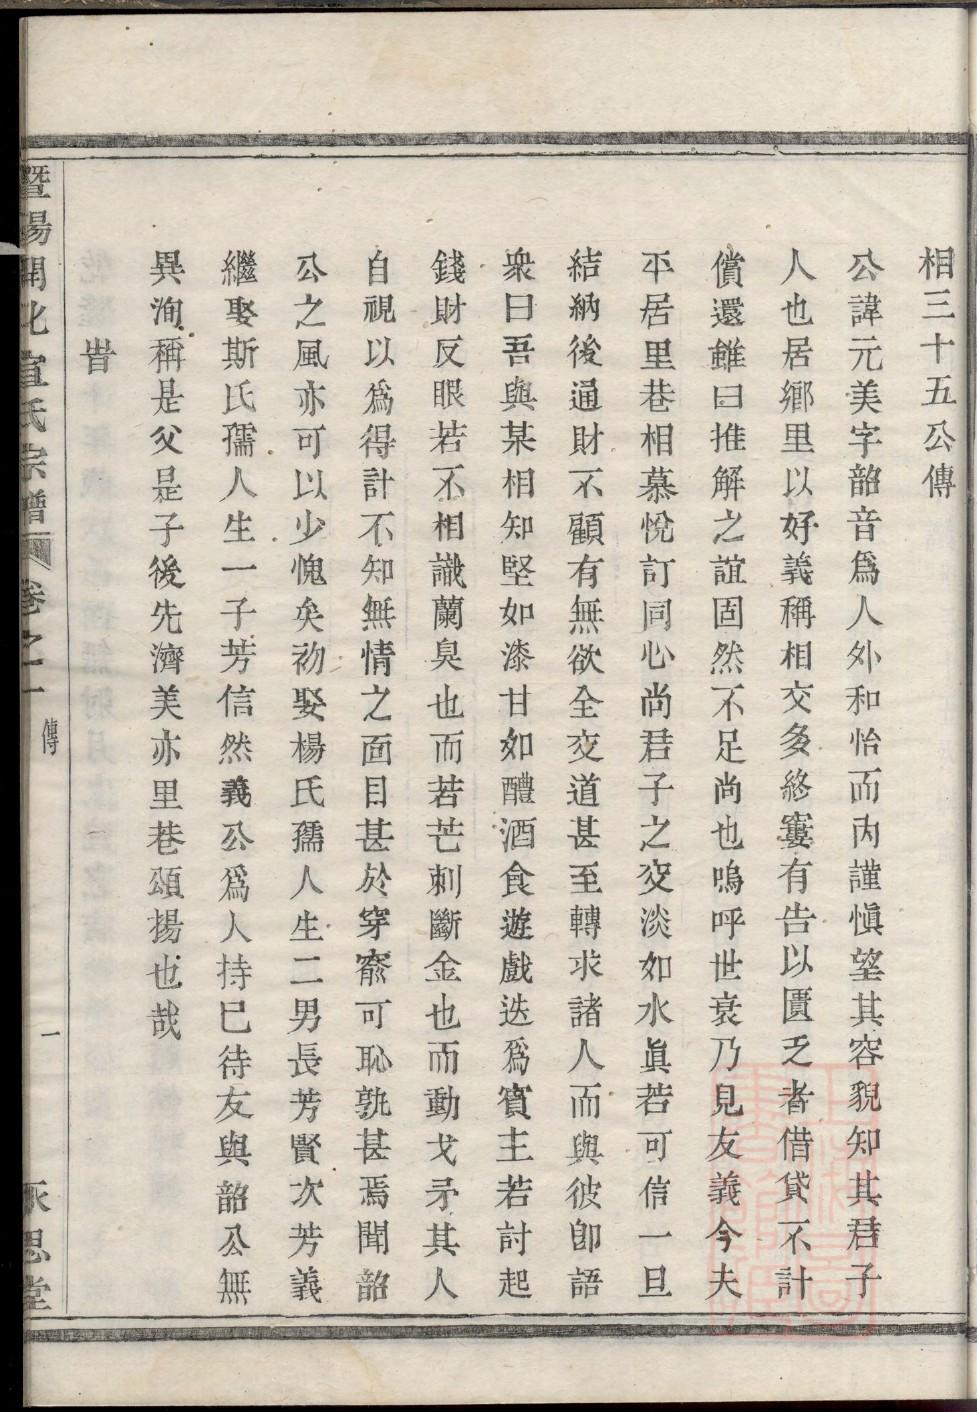 相三十五公傳
公諱元美字韶音爲人外和怡而內謹愼望其容貌知其君子
人也居鄉里以好義稱相交多終寠有告以匱乏者借貸不計
償還雖曰推解之誼固然不足尚也嗚呼世衰乃見友義今夫
平居里巷相慕悅訂同心尚君子之交淡如水眞若可信一旦
結納後通財不顧有無欲全交道甚至轉求諸人而與彼卽語
衆曰吾與某相知堅如漆甘如醴酒食遊戲迭爲賓主若討起
錢財反眼若不相識蘭臭也而若芒刺斷金也而動戈矛其人
自視以爲得計不知無情之面目甚於穿窬可恥孰甚焉聞韶
公之風亦可以少愧矣初娶楊氏孺人生二男長芳賢次芳義
繼娶斯氏孺人生一子芳信然義公爲人持己待友與韶公無
異洵稱是父是子後先濟美亦里巷頌揚也哉
旹
暨陽開化宣氏宗譜 卷之一 傳 一 承思堂